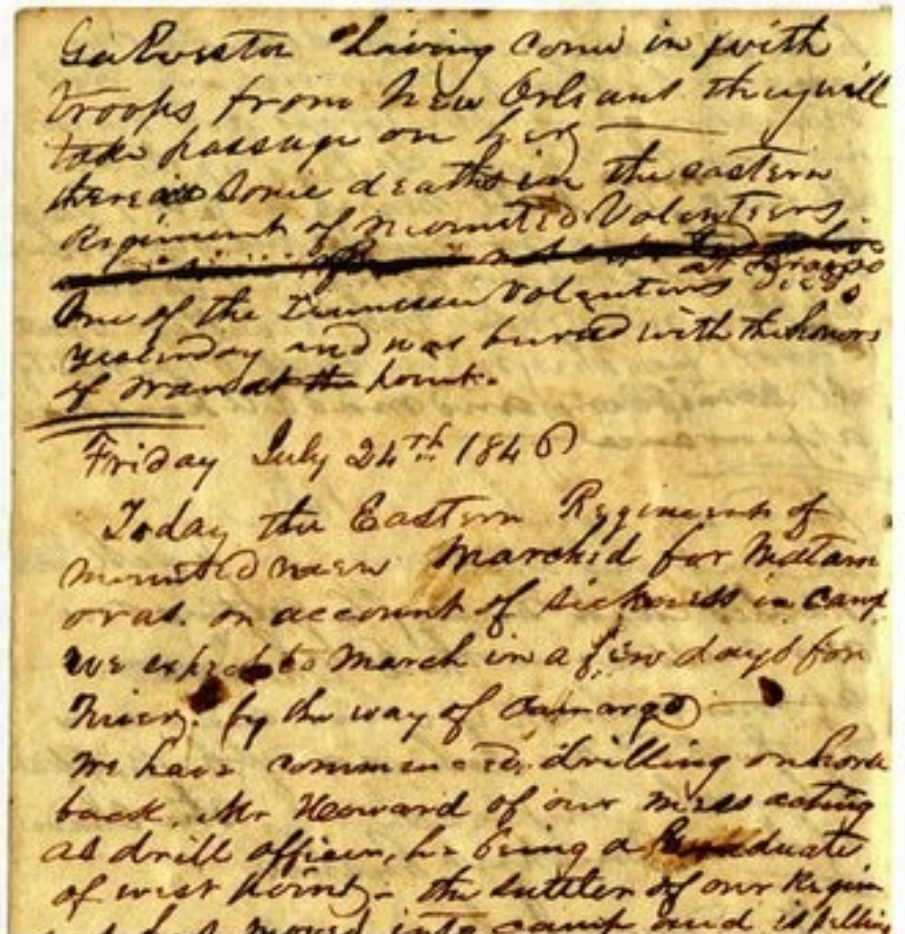 Galveston having come in with
troops from New Orleans they will
take passage on her
there is some deaths in the eastern
Regiment of Mounted Volunteers.
at Brazzo
One of the Tennessee Volunteers dies
yesterday and was buried with the honors
of war at the point.
Friday July 24th 1846
Today the Eastern Regiment of
mounted men Marchid for Matam
oras. on account of sickness in camp
we expect to march in a few days for
by the way of Camargo
we have commenced drilling on horse
back. Mr Howard of our mess acting
as drill officer, he being a Graduate
of west point - the suttler of our Regim
has moved into camp and is selling